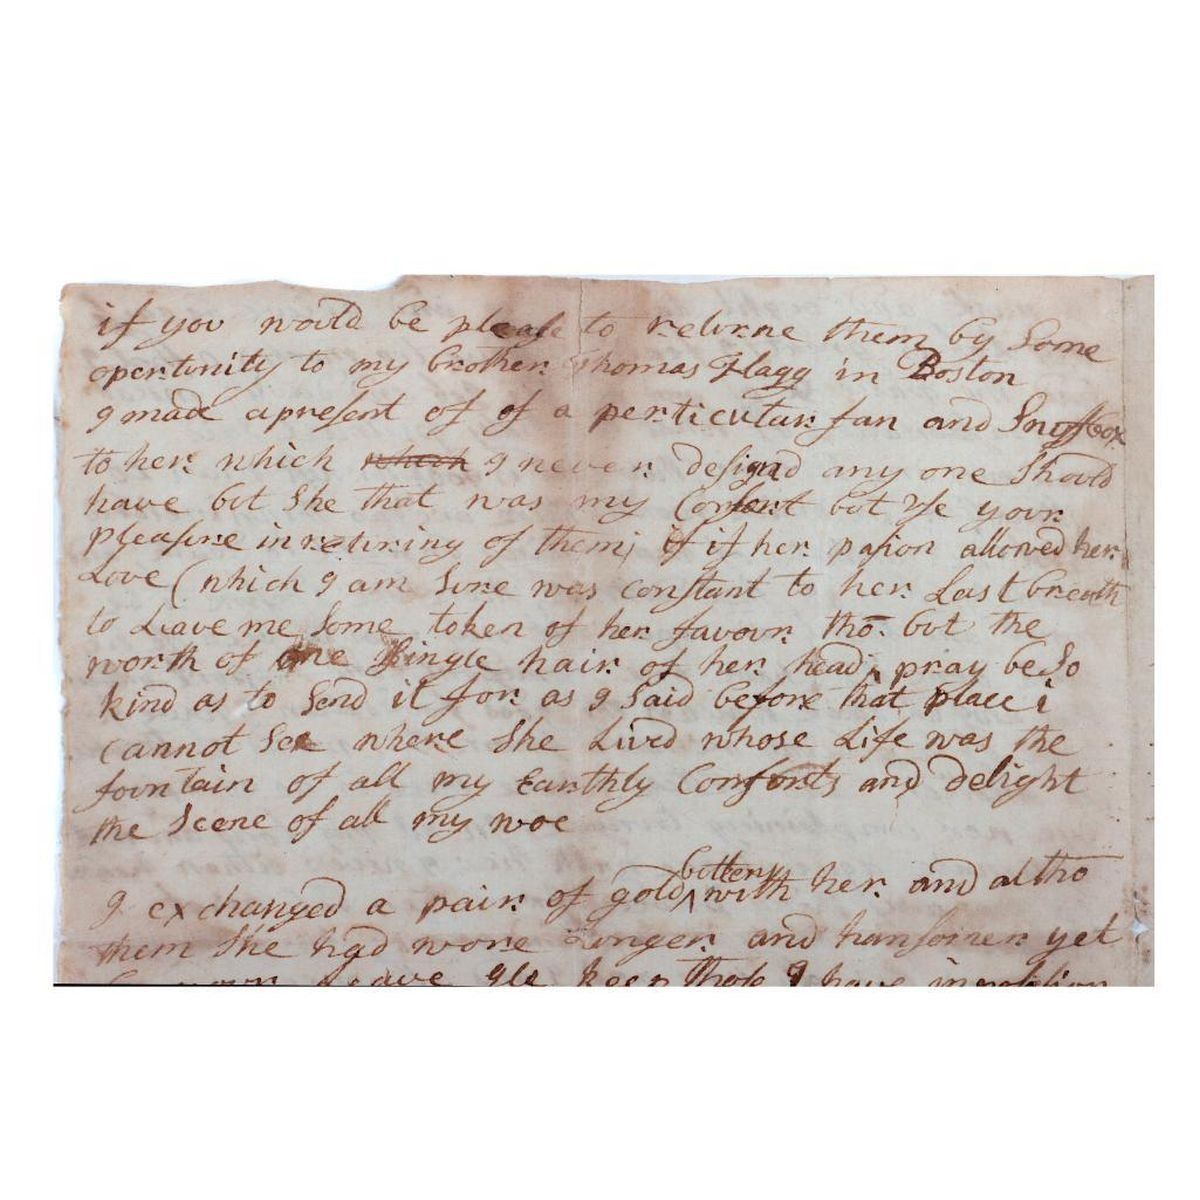 if you would be please to returne them by Some
opertunity to my brother Thomas Flagg in Boston
I made a present of of a perticular fan and Snuffbox
to her which which I never design'd any one Should
have but She that was my Consort but Use your
pleasure in returing of them; if if her pasion allowed her
Love (which I am Sure was constant to her Last breath
to Leave me Some token of her favour tho: but the
worth of one Single hair of her head, pray be So
kind as to Send it for as I Said before that place i
Cannot See where She Lived whose Life was the
fountain of all my Earthly Comforts and delight
the Scene of all my woe
I exchanged a pair of gold buttens with her and altho
them She had wore Longer and hansomer yet
your Leave Ile keep those I have in